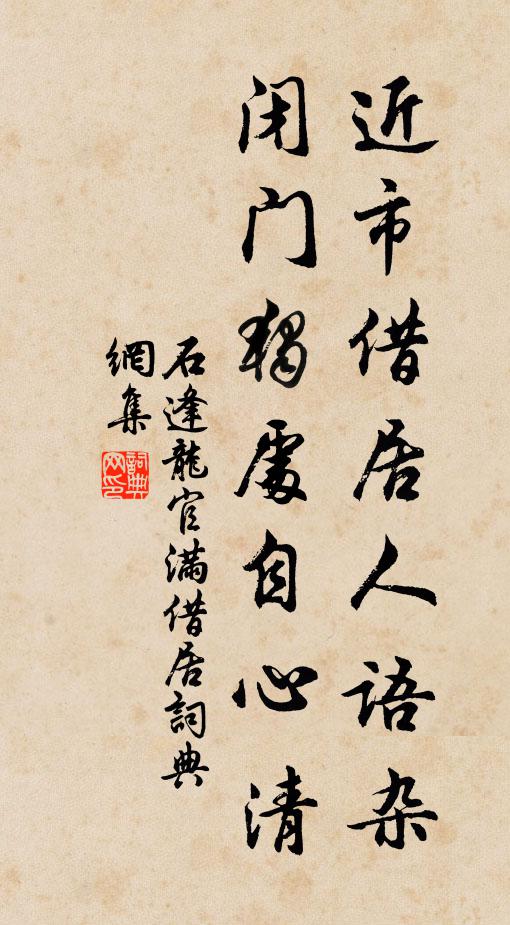 近市借居人语杂
闭门独處自心清
石逢龍官满借居詞典
網集
詞典網印